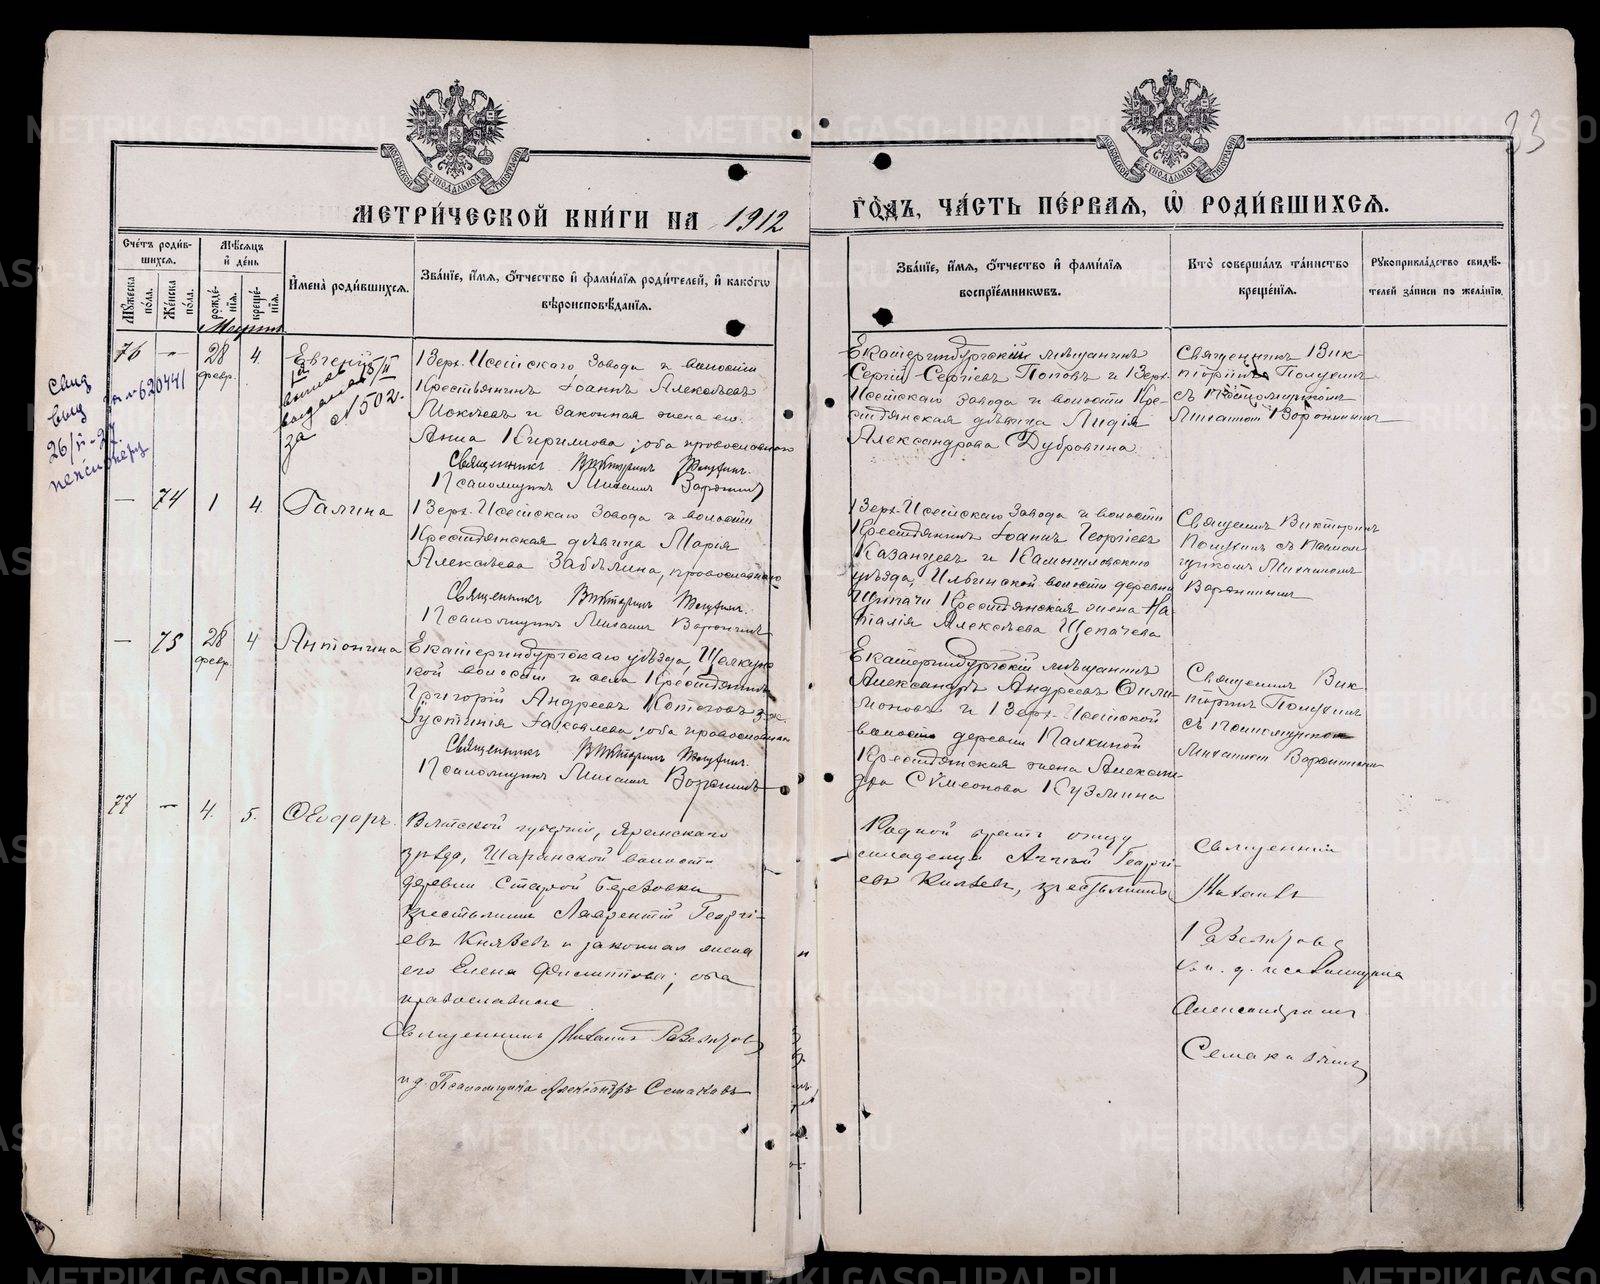 33
МОСКОВСКОЙ СѴНОДАЛЬНОЙ ТИПОГРАФІИ
МОСКОВСКОЙ СѴНОДАЛЬНОЙ ТИПОГРАФІИ
МЕТРИ́ЧЕСКОЙ КНИ́ГИ НА 1912 ГО́ДЪ, ЧА́СТЬ ПЕ́РВАЯ, Ѡ РОДИ́ВШИХСѦ.
Счетъ роди́вшихсѧ.
Мꙋ́жеска по́ла.
Же́нска по́ла.
Мѣ́сѧцъ и҆ де́нь
рожде́нїѧ.
креще́нїѧ.
И҆мена̀ роди́вшихсѧ.
Зва́нїе, и҆́мѧ, ѻ҆́тчество и҆ фами́лїѧ роди́телей, и҆ како́гѡ
вѣроисповѣ́данїѧ.
Зва́нїе, и҆́мѧ, ѻ҆́тчество и҆ фами́лїѧ
воспрїе́мникѡвъ.
Кто̀ соверша́лъ та́инство
креще́нїѧ.
Рꙋкоприкла́дство свидѣ́-
телей за́писи по жела́нїю.
Мартъ
76 — 28 февр. 4. Евгеній
выдана
за № 502.
Свид
выд
26/
пенсионеру
Верх-Исетскаго Завода и волости
Крестьянинъ Іоаннъ Алексѣевъ
Мокѣевъ и законная жена его
Анна Кирилова; оба православнаго
Священникъ Викторинъ Полухинъ.
Псаломщикъ Михаилъ Воронинъ
Екатеринбургскій мѣщанинъ
Сергій Сергіевъ Поповъ и Верх-
Исетскаго завода и волости Кре-
стьянская дѣвица Лидія
Александрова Дубровина
Священникъ Вик-
торинъ Полухинъ
съ Псаломщикомъ
Михаиломъ Воронинымъ
— 74 1 4. Галина
Верх-Исетскаго Завода и волости
Крестьянская дѣвица Марія
Алексѣева Забѣлина, православнаго
Священникъ Викторинъ Полухинъ.
Псаломщикъ Михаилъ Воронинъ
Верх-Исетскаго Завода и волости
Крестьянинъ Іоаннъ Георгіевъ
Казанцевъ и Камышловскаго
уѣзда, волости деревни
Щипачи Крестьянская жена На-
талія Алексѣева Щепачева
Священникъ Викторинъ
Полухинъ съ Псалом-
щикомъ Михаиломъ
Воронинымъ
— 75 28 февр. 4 Антонина
Екатеринбургскаго уѣзда, Щелкунс
кой волости и села Крестьянинъ
Григорій Андреевъ Котеговъ з. ж.
Густинія Іаковлева; оба православнаго
Священникъ Викторинъ Полухинъ.
Псаломщикъ Михаилъ Воронинъ
Екатеринбургскій мѣщанинъ
Александръ Андреевъ Фили-
моновъ и Верх-Исетской
волости деревни Палкиной
Крестьянская жена Алексан-
дра Сѵмеонова Кузмина
Священникъ Вик-
торинъ Полухинъ
съ Псаломщикомъ
Михаиломъ Воронинымъ
77 — 4. 5. Ѳеодоръ.
Вятской губерніи, Яранскаго
уѣзда, Шаранской волости
деревни Старой Березовки
крестьянинъ Лаврентій Георгі-
евъ Князевъ и законная жена
его Елена; оба
православные
Священникъ Михаилъ
и. д. Псаломщика Александръ Семаковъ
Родной братъ отцу
младенца Георгі-
евъ Князевъ, крестьянинъ
Священникъ
Михаилъ
съ и. д. псаломщика
Александромъ
Семаковымъ
METRIKI.GASO-URAL.RU